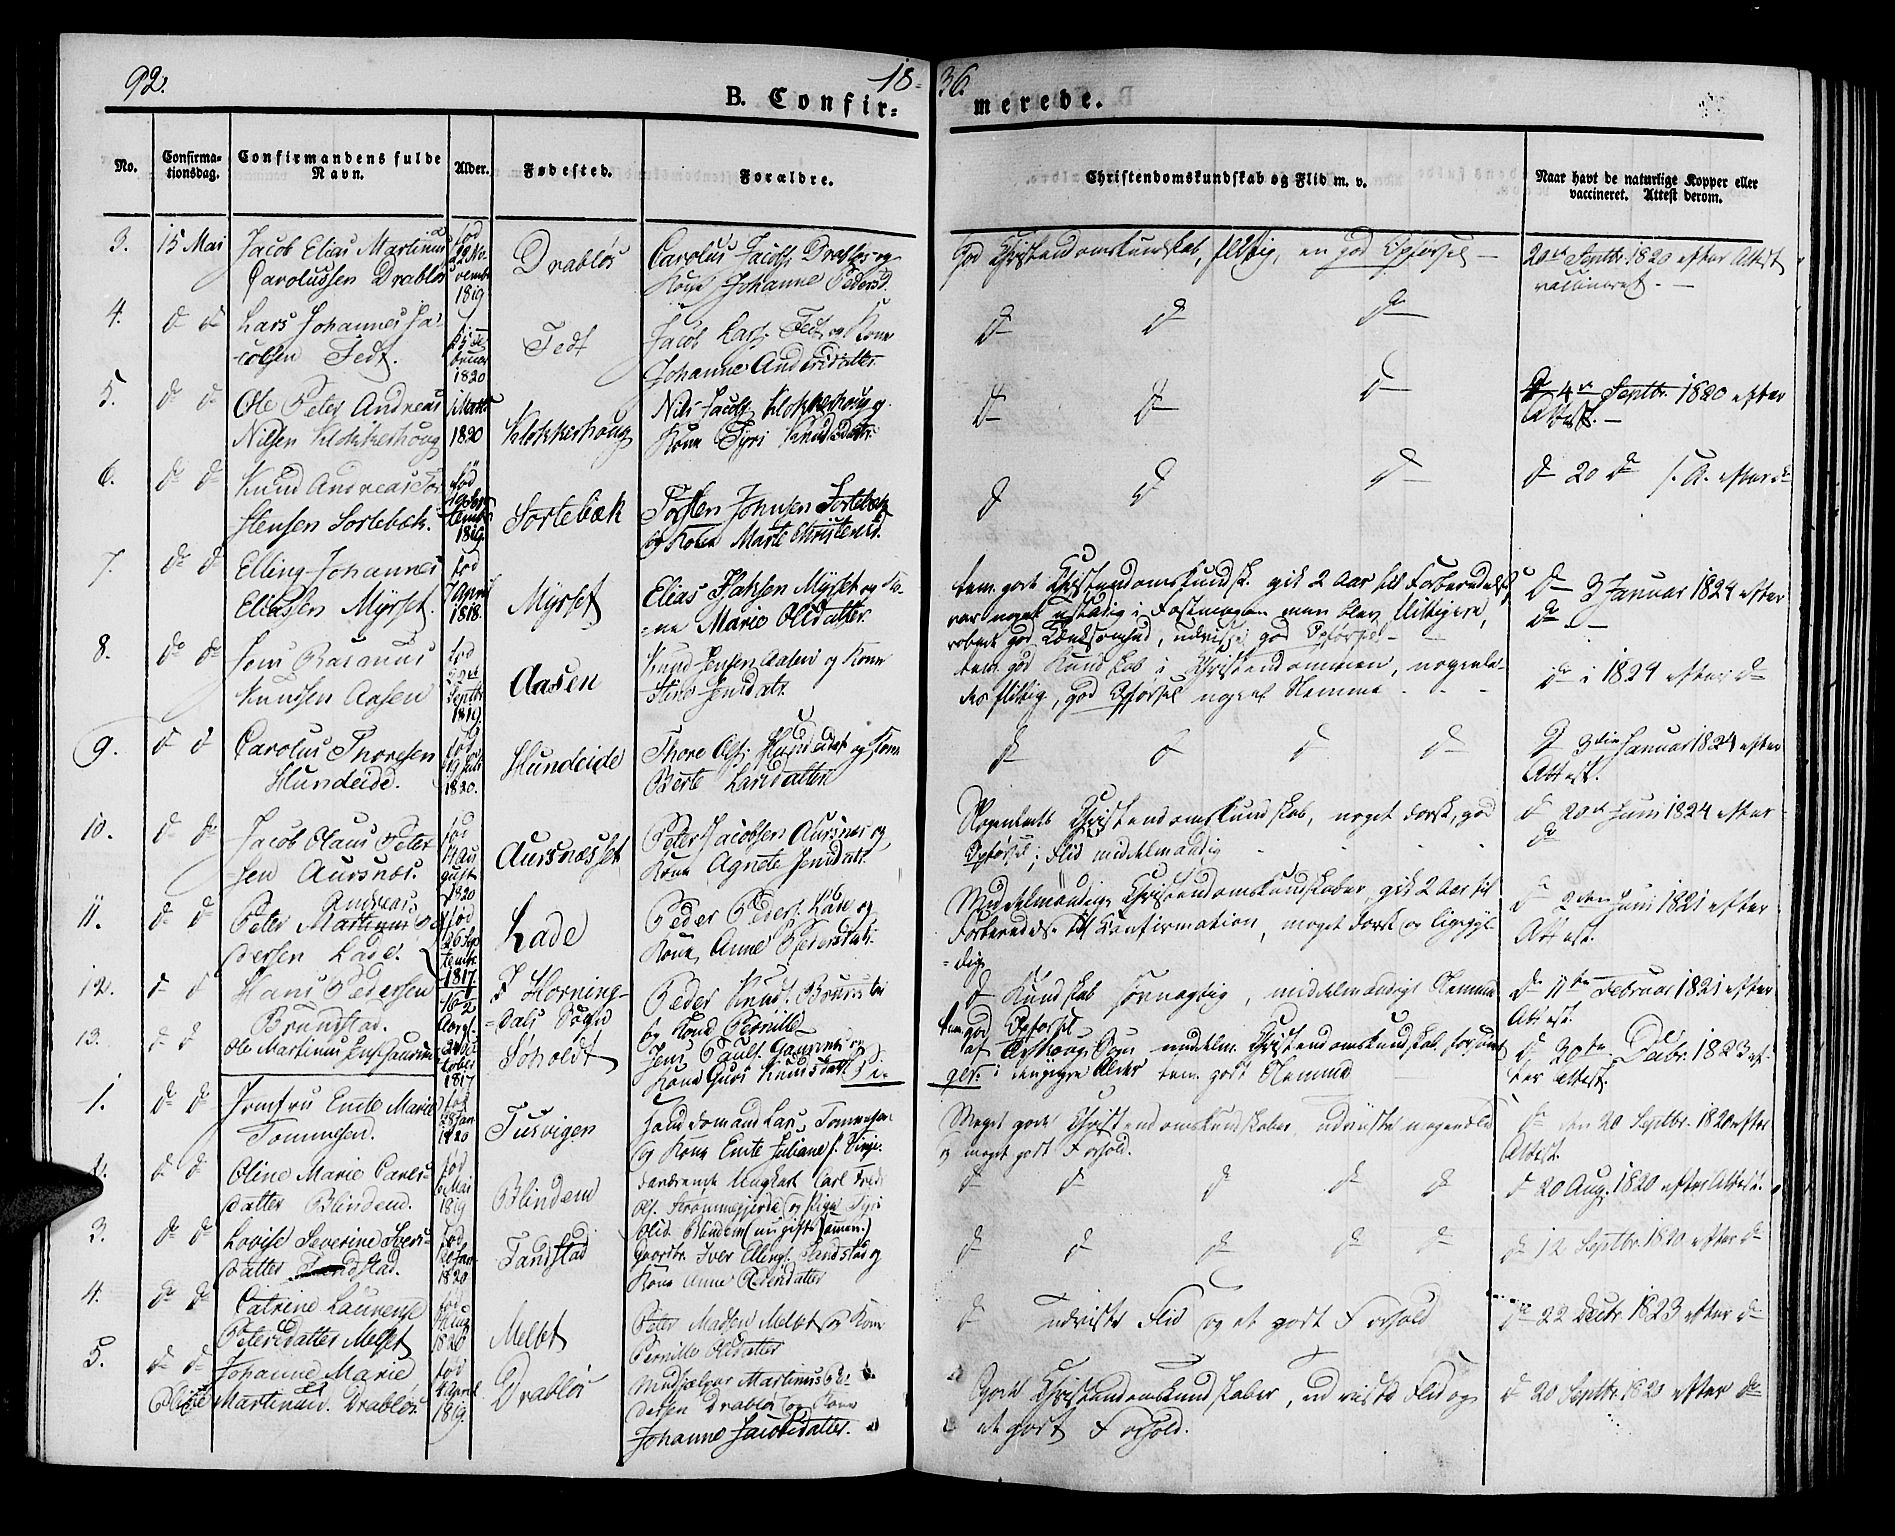 92.
18
36.
B. Confir=
merede.
No.
Confirma-
tionsdag.
Confirmandens fulde
Navn.
Alder.
Fødested.
Forældre.
Christendomskundskab og Flid m. v.
Naar havt de naturlige Kopper eller
vaccineret. Attest derom.
3. 15 Mai
Jacob Elias Martinus
Carolussen Drabløs
fød
1819
Drabløs
Carolus Jacobs. Drabløs og
Kone Johanne Pedersd.
God Christendomskundskab, flittig, en god Opførsel
20de Septbr. 1820 efter Attest
vaccineret.
4. d d
Lars Johannes Ja-
cobsen Fedt.
1820
Fedt
Jacob Lars. Fedt og Kone
Johanne Andersdatter.
d d d
5. d d
Ole Peter Andreas
Nilsen Klokkerhoug
1820
Klokkerhoug
Nils Jacobs. Klokkerhoug og
Kone Syri Knudsdatter
d d d
4de Septbr. 1820 efter
Attest.
6. d d
Knud Andreas Tor-
stensen Sortebæk.
fød
1819
Sortebæk
Torsten Johnsen Sortebæk
og Kone Marte Christensd.
d d d
d 20 d s. A. efter d
7. d d
Elling Johannes
Eliasen Myrset.
fød
7 April
1818.
Myrset
Elias Isaksen Myrset og Ko-
=ne Marie Olsdatter.
tem. gode Christendomskundsk. gik 2 Aar til Forberedelse,
var noget ustadig i Fastmagen men blev flittigere,
god Tænksomhed, udviste god Opførsel
d 3 Januar 1824 efter
d
8. d d
Jens Rasmus
Knudsen Aasen
fød
Septbr
1819.
Aasen
Knud Jensen Aasen og Kone
Jensdatr.
tem. god Kundskab i Christendommen, nogenle-
des flittig, god Opførsel noget Nemme
d i 1824 efter d
9. d d
Carolus Thoresen
Hundeide.
fød
1820.
Hundeide
Thore Ols. Hundeide og Kone
Berte Larsdatter
d d d d
d 3die Januar 1824 efter
Attest.
10. d d
Jacob Olaus Peter
sen Aursnes.
fød
Au
gust
1820
Aursnesset
Peter Jacobsen Aursnes og
Kone Agnete Jensdatr.
Nogenlunde Christendomskundskab, noget dorsk, god
Opførsel; Flid middelmaadig
d 20de Juni 1824 efter
d
11. d d
Andreas
Peter Martinus Pe
dersen Lade.
fød
26 Sep
tembr.
1817.
Lade
Peder Peders. Lade og
Kone Anne Pedersdatr.
Middelmaadige Christendomskundskaber, gik 2 Aar til
Forberedelse til Confirmation, meget dorsk og ligegyl
=dig
d 2den Juni 1821 efter
Attest.
12. d d
Hans Pedersen
Brunstad.
16½
Aar gl.
I Horning-
=dals Sogn
Peder Knuds. Brunstad
og Kone Pernille
d Kundskab fornøgtig, middelmaadigt Nemme
tem god Opførsel
d 11te Februar 1821 efter
Attest.
13. d d
Ole Martinus Jens. Gausnes
1817
Søholdt
Jens Pauls. Gausnes og
Kone Guri Knudsdatter
middelm. Christendomskundskab, forsømt
i yngre Alder tem. godt Nemme
d 30te Decbr. 1823 ef-
ter Attest.
1. d d
Jomfru Emte Marie
Tommesen.
fød
28 Jan
1820
Tusvigen
Handelsmand Lars Tommesen
og Kone Emte Juliane f. Vinje.
Meget gode Christendomskundskaber, udviste megen Flid
og meget godt Forhold.
d den 20 Septbr. 1820 efter
Attest.
2. d d
Oline Marie Carls-
datter Blindem.
fød
6 Mai
1819
Blindem
Ungkarl Carl Fred.
Ols. Strømmegjerde og Pige Syri
Olsd. Blindem (nu gifte sammen.)
d d d d d
d 20 Aug. 1820 efter Attest.
3. d d
Lovise Severine Ivers-
datter Tandstad.
fød
1820
Tandstad
Gaardbr. Iver Ellings. Tandstad og
Kone Anne Pedersdatter
d d d d d
d 12 Septbr. 1820 efter d
4. d d
Catrine Laurense
Petersdatter Melset
fød
Aug
1820
Melset
Peter Madsen Melset og Kone
Pernille Olsdatter
d udviste Flid og et godt Forhold
d 22 Decbr. 1823 efter d
5. d d
Johanne Marie
Oline Martinusd. Drabløs.
fød
April
1819.
Drabløs
Medhjælper Martinus Pe-
dersen Drabløs og Kone
Johanne Jacobsdatter.
Gode Christendomskundskaber, udviste Flid og
et godt Forhold.
d 20 Septbr. 1820 efter d